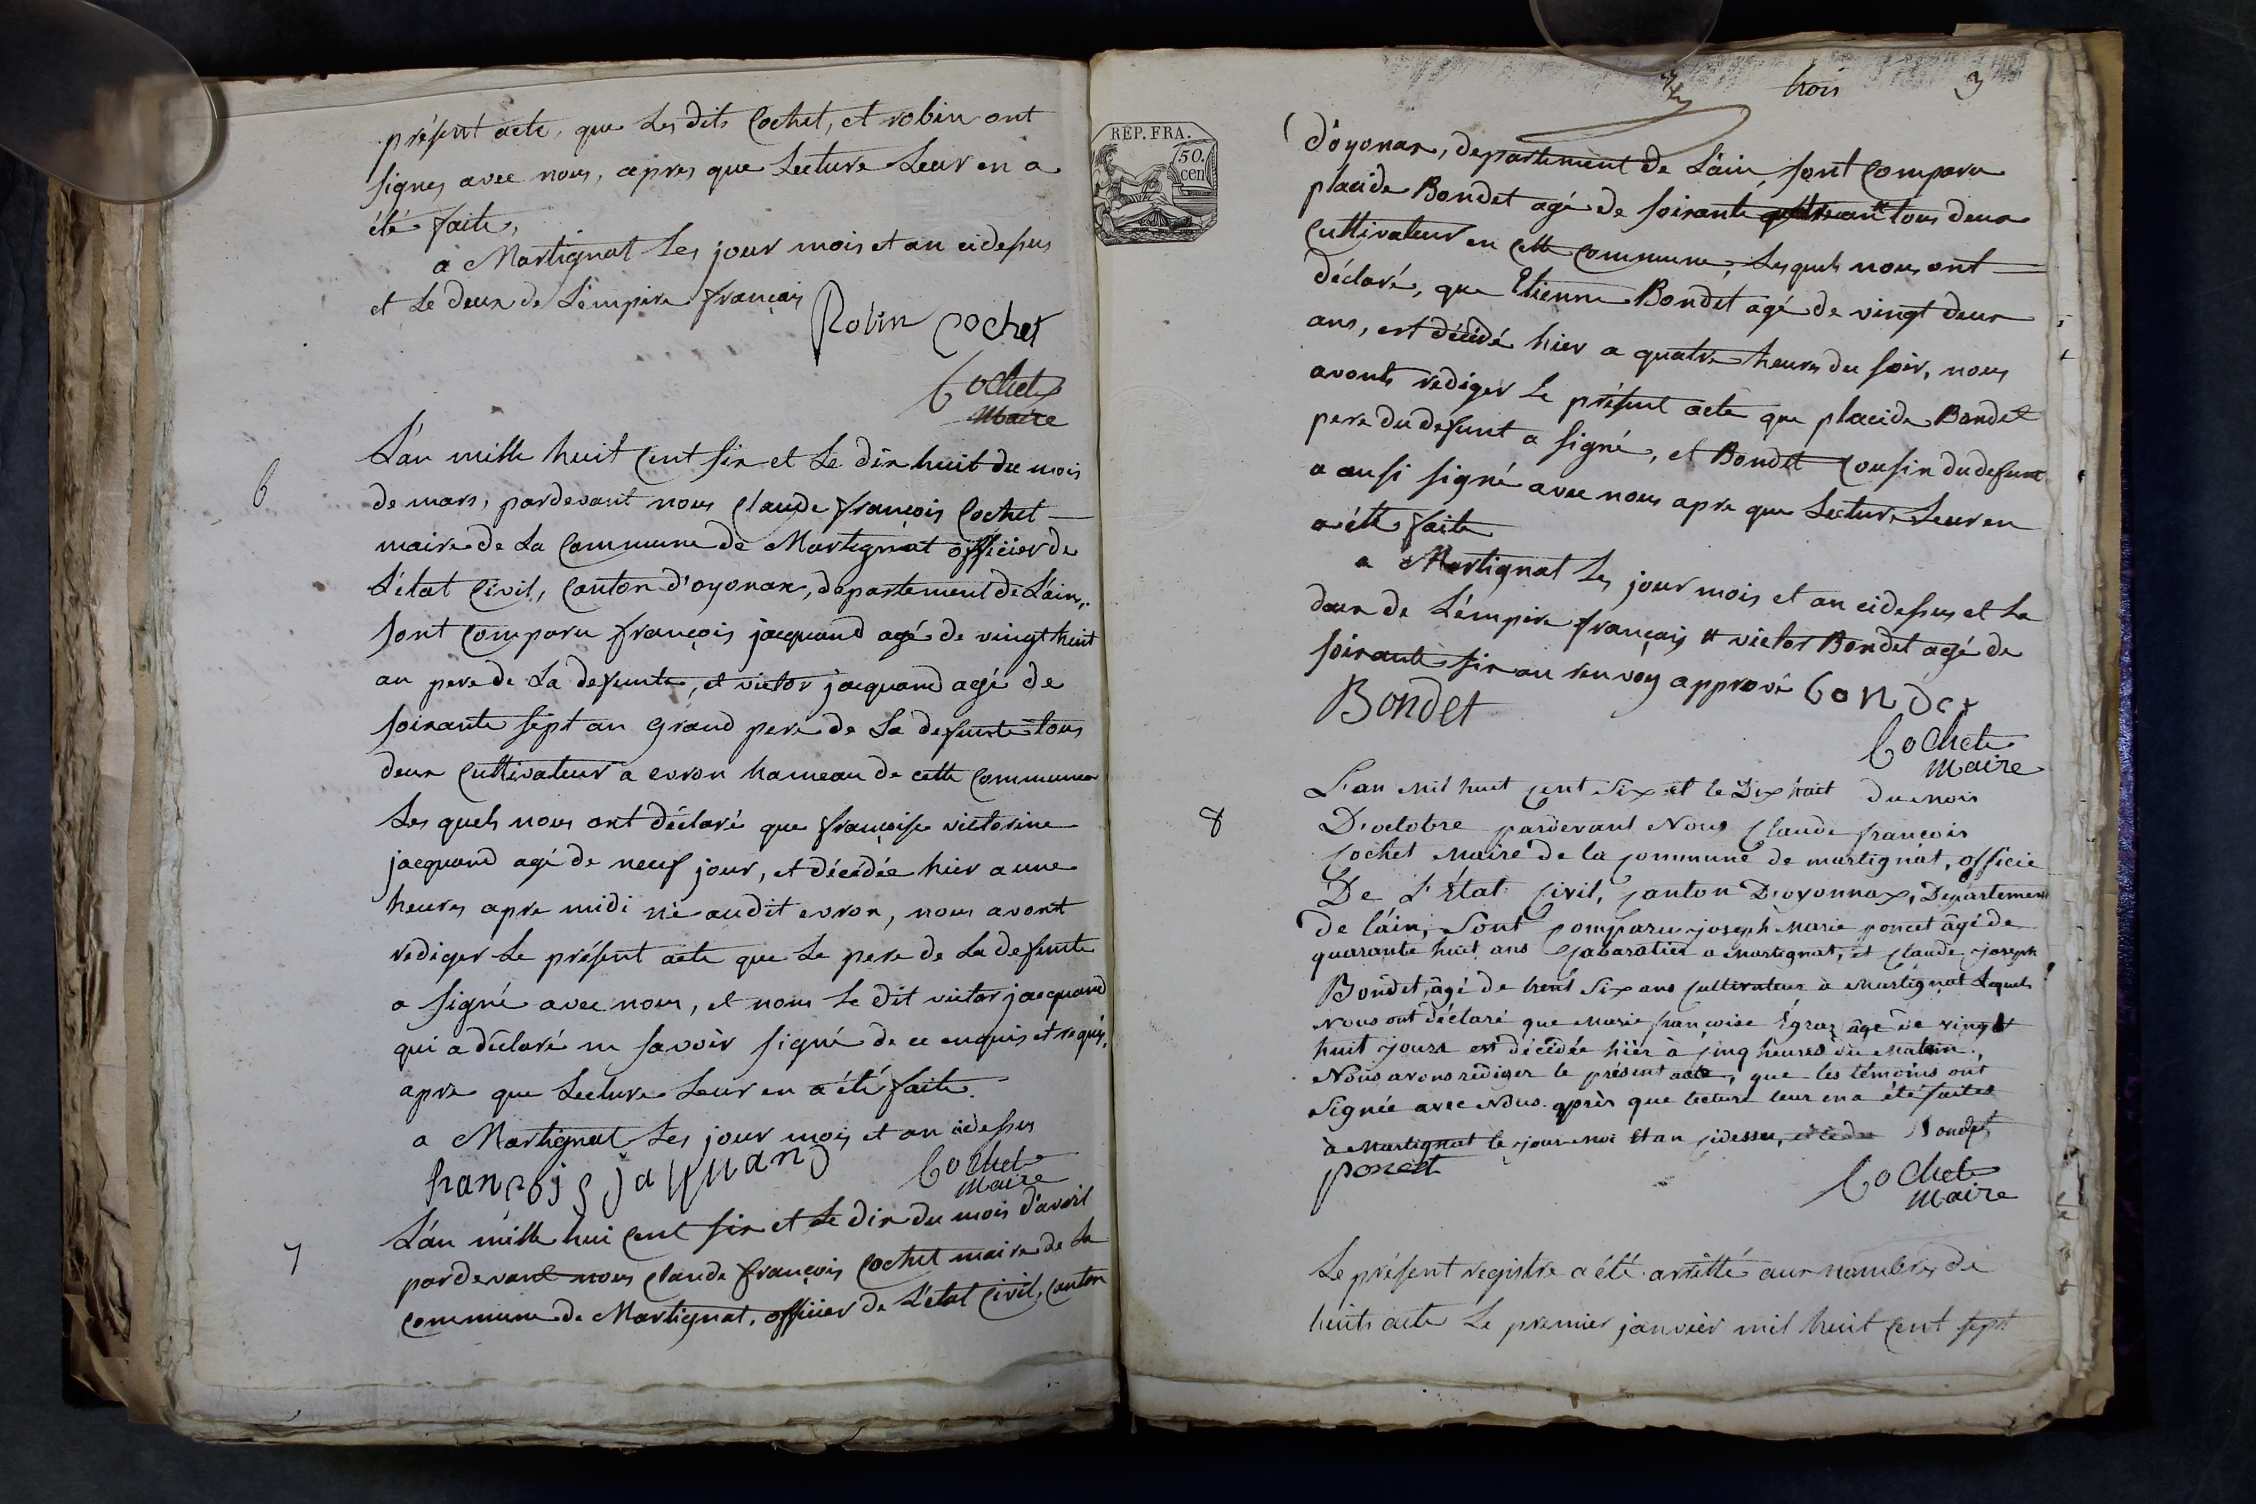 présent acte, que les dits Cochet, et robin ont
signes avec nous, apres que Lecture Leur en a
été faite,
a Martignat Les jour mois et an cidessus
et Le deux de L'empire français
Robin Cochet
Cochet
Maire
6
L'an mille huit Cent six et Le dix huit du mois
de mars, pardevant nous Claude françois Cochet
maire de La Commune de Martignat officier de
L'état Civil, Canton d'oyonax, département de L'ain,
sont Comparu françois jacquand agé de vingt huit
an pere de La defunte, et victor jacquand agé de
soixante sept an grand pere de La defunte tous
deux Cultivateur a evron hameau de cette Commune
Les quels nous ont déclaré que françoise victorine
jacquand agé de neuf jour, et décédée hier a une
heures apre midi né audit evron, nous avont
rediger Le présent acte que Le pere de La defunte
a signé avec nous, et nous Le dit victor jacquand
qui a déclaré ne savoir signé de ce enquis et requis,
apre que Lecture Leur en a été faite.
a Martignat Les jour mois et an cidessus
françois jaqquand
Cochet
Maire
7
L'an mille hui Cent six et Le dix du mois d'avril
pardevant nous Claude françois Cochet maire de La
Commune de Martignat, officier de L'état Civil, Canton
trois 3
REP. FRA.
50.
cen
d'oyonax, departement de L'ain, sont Comparu
placide Bondet agé de soixante tous deux
Cultivateur en cette Commune, Lesquels nous ont
déclaré, que Etienne Bondet agé de vingt deux
ans, est décédé hier a quatre heures du soir, nous
avonts rediger Le présent acte que placide Bondet
pere du defunt a signé, et Bondet Cousin du defunt
a ausi signé avec nous apre que Lecture Leur en
a été faite
a Martignat Les jour mois et an cidessus et Le
deux de L'émpire français # victor Bondet agé de
soixante six an renvoy apprové bondet
Bondet
Cochet
Maire
8
L'an mil huit cent Six et le Dix huit du mois
D'octobre pardevant Nous Claude françois
Cochet Maire de la Commune de martignat, officie
De L'État Civil, Canton D'oyonnax, Département
de l'ain, Sont Comparu joseph Marie poncet âgé de
quarante huit ans Cabaratier a Martignat, et Claude joseph
Bondet, âgé de trent Six ans Cultivateur à Martignat Lequels
Nous ont déclaré que Marie françoise Égraz âgé de vingt
huit jours est décédée hier à Cinq heures du Matein,
Nous avons rédiger le présent acte, que les témoins ont
Signée avec Nous après que lecture leur en a été faites
à Martignat le jour moi et an cidessu, et le du Bondet
poncet
Cochet
Maire
Le présent registre a été arrêtté aux nombre de
huits acte Le premier janvier mil huit Cent sept